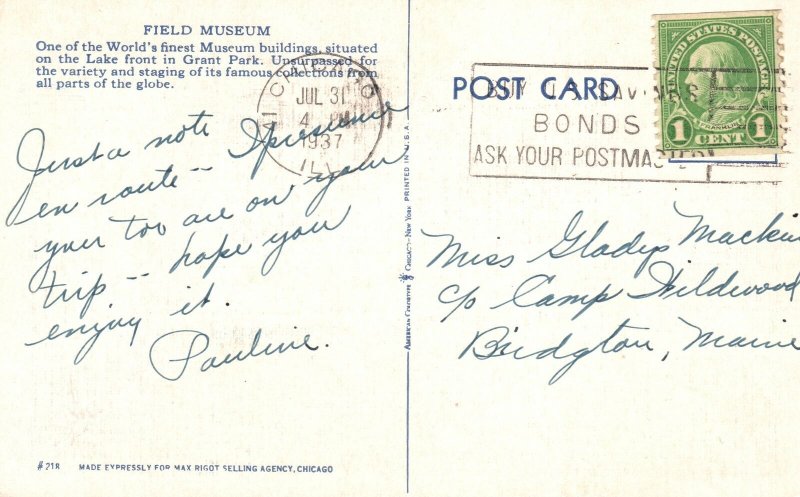 FIELD MUSEUM
One of the World's finest Museum buildings, situated
on the Lake front in Grant Park. Unsurpassed for
the variety and staging of its famous collections from
all parts of the globe.
CHICAGO
JUL 31
4 PM
1937
ILL
Just a note
en route -- I presume
your too are on your
trip -- hope you
enjoy it.
Pauline.
#718 MADE EXPRESSLY FOR MAX RIGOT SELLING AGENCY, CHICAGO
AMERICAN COLORTYPE CHICAGO-NEW YORK PRINTED IN U.S.A.
POST CARD
BUY U.S. SAVINGS
BONDS
ASK YOUR POSTMASTER
UNITED STATES POSTAGE
FRANKLIN
1 CENT 1
Miss Gladys Mackin
c/o Camp Wildewood
Bridgton, Maine